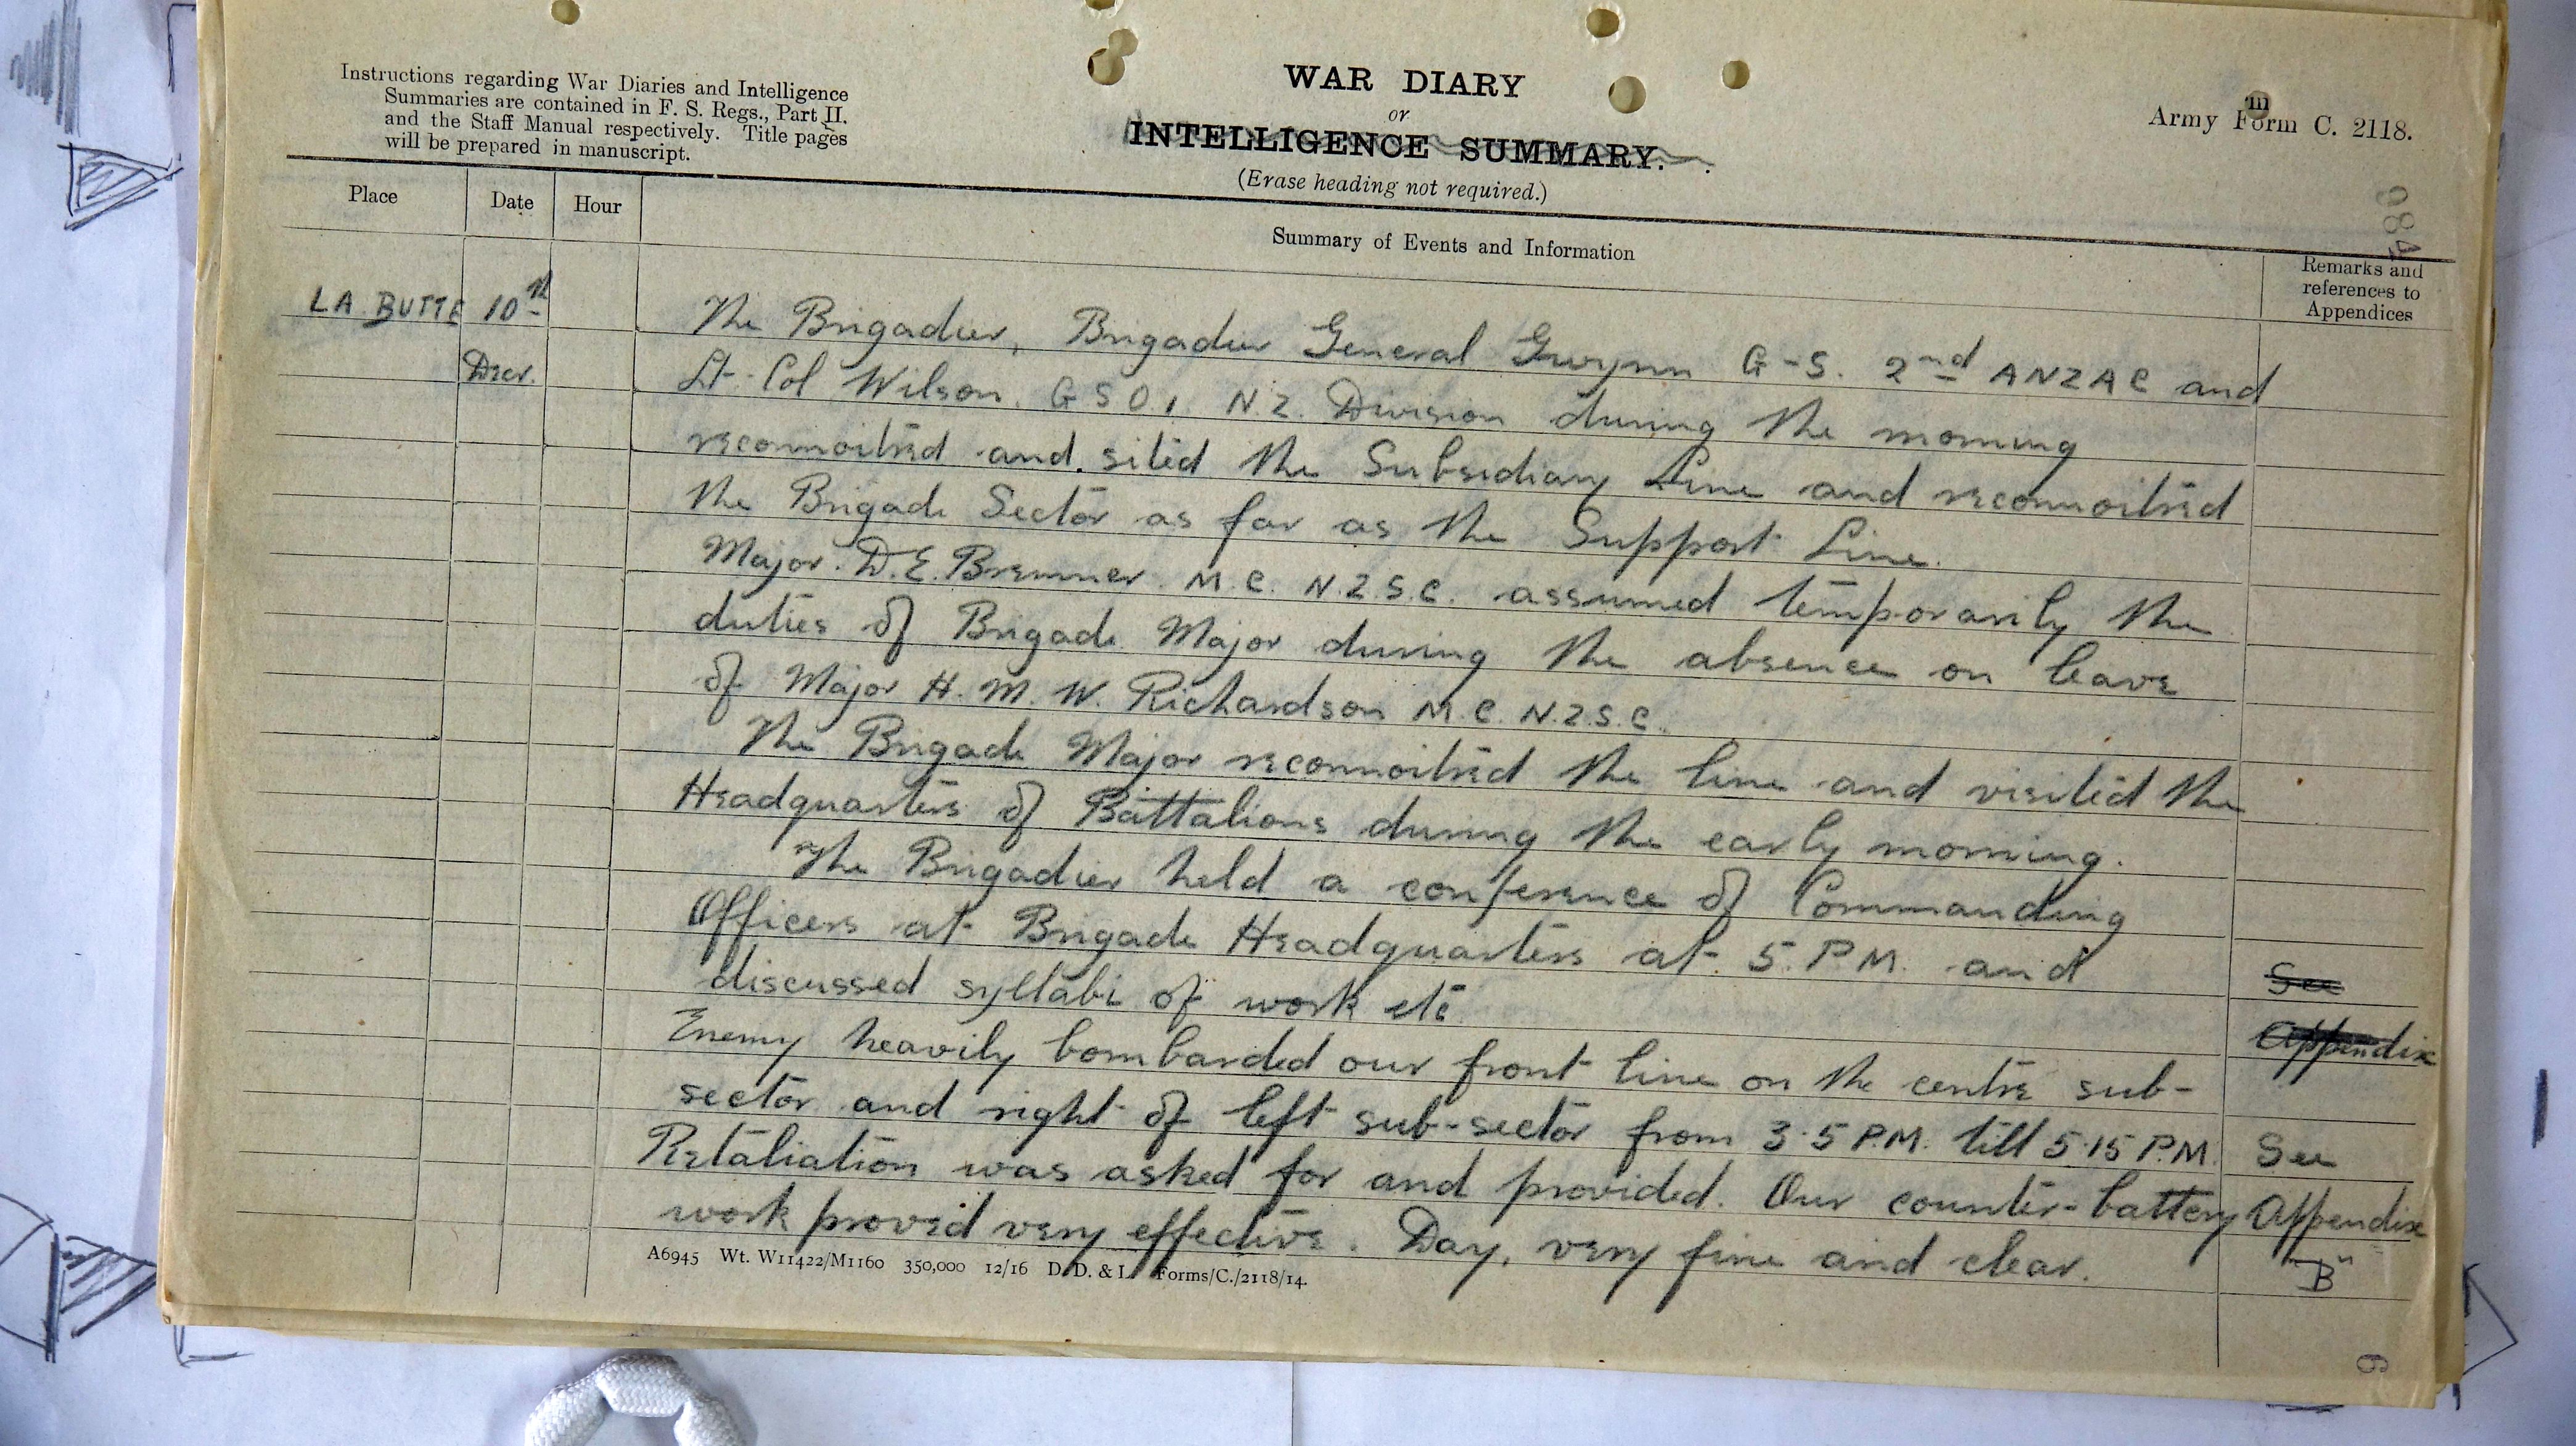 Instructions regarding War Diaries and Intelligence
Summaries are contained in F. S. Regs., Part II.
and the Staff Manual respectively. Title pages
will be prepared in manuscript.
WAR DIARY
or
INTELLIGENCE SUMMARY.
(Erase heading not required.)
Army Form C. 2118.
Place Date Hour
Summary of Events and Information
Remarks and
references to
Appendices
LA BUTTE 10th
Decr.
The Brigadier, Brigadier General Gwynn G-S. 2nd ANZAC and
Lt-Col Wilson. GSO1 N.Z. Division during the morning
reconnoitred and sited the Subsidiary Line and reconnoitred
the Brigade Sector as far as the Support Line.
Major D.E. Bremner M.C. N.Z.S.C. assumed temporarily the
duties of Brigade Major during the absence on leave
of Major H. M. W. Richardson M.C. N.Z.S.C.
The Brigade Major reconnoitred the line and visited the
Headquarters of Battalions during the early morning.
The Brigadier held a conference of Commanding
Officers at Brigade Headquarters at 5. P.M. and
discussed syllabi of work etc
Enemy heavily bombarded our front line on the centre sub-
sector and right of left sub-sector from 3.5 P.M. till 5.15 P.M.
Retaliation was asked for and provided. Our counter-battery
work proved very effective. Day, very fine and clear.
See
Appendix
See
Appendix
"B"
A6945 Wt. W11422/M1160 350,000 12/16 D. D. & L. Forms/C./2118/14.
084
6